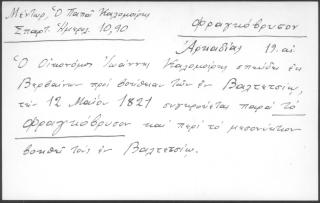 Μέντωρ, Ὁ Παπᾶ Καλομοίρης
Σπαρτ. Ἡμερολ. 10,90
Φραγκόβρυσον
Ἀρκαδίας 19. αἰ
Ὁ Οἰκονόμος Ἰωάννης Καλομοίρης σπεύδει ἐκ
Βερβαίνων πρὸς βοήθειαν τῶν ἐν Βαλτετσίῳ,
τὴν 12 Μαΐου 1821 συγκρούεται παρὰ τὸ
Φραγκόβρυσον καὶ περὶ τὸ μεσονύκτιον
βοηθεῖ τοὺς ἐν Βαλτετσίῳ.